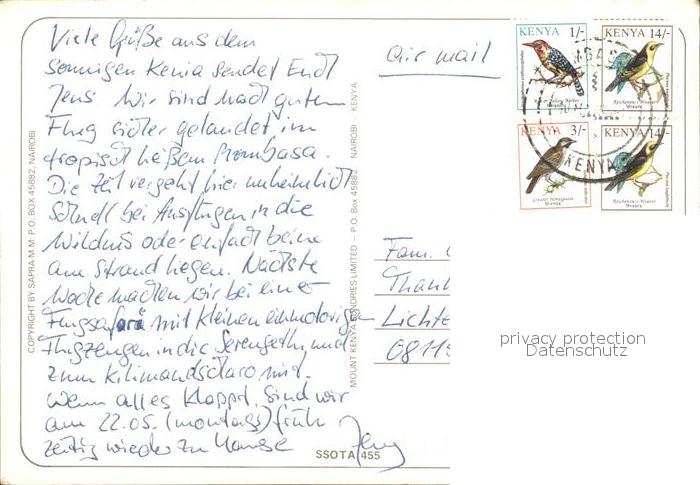 Viele Grüße aus dem
sonnigen Kenia sendet Endt
Jens. Wir sind nach gutem
Flug sicher gelandet im
tropisch heißem Mombasa.
Die Zeit vergeht hier unheimlich
schnell bei Ausflügen in die
Wildnis oder einfach beim
am Strand liegen. Nächste
Woche machen wir bei einer
Flugsafari mit kleinen einmotorigen
Flugzeugen in die Serengethi und
zum Kilimandscharo mit.
Wenn alles klappt, sind wir
am 22.05. (montags) früh
zeitig wieder zu Hause
Jens
air mail
KENYA 1/-
KENYA 14/-
KENYA 3/-
KENYA 14/-
KENYA
Fam.
Thank
Lichte
0811
COPYRIGHT BY SAPRA M.M. P.O. BOX 45882, NAIROBI
MOUNT KENYA SUNDRIES LIMITED - P.O. Box 45882. NAIROBI - KENYA
SSOTA 455
privacy protection
Datenschutz